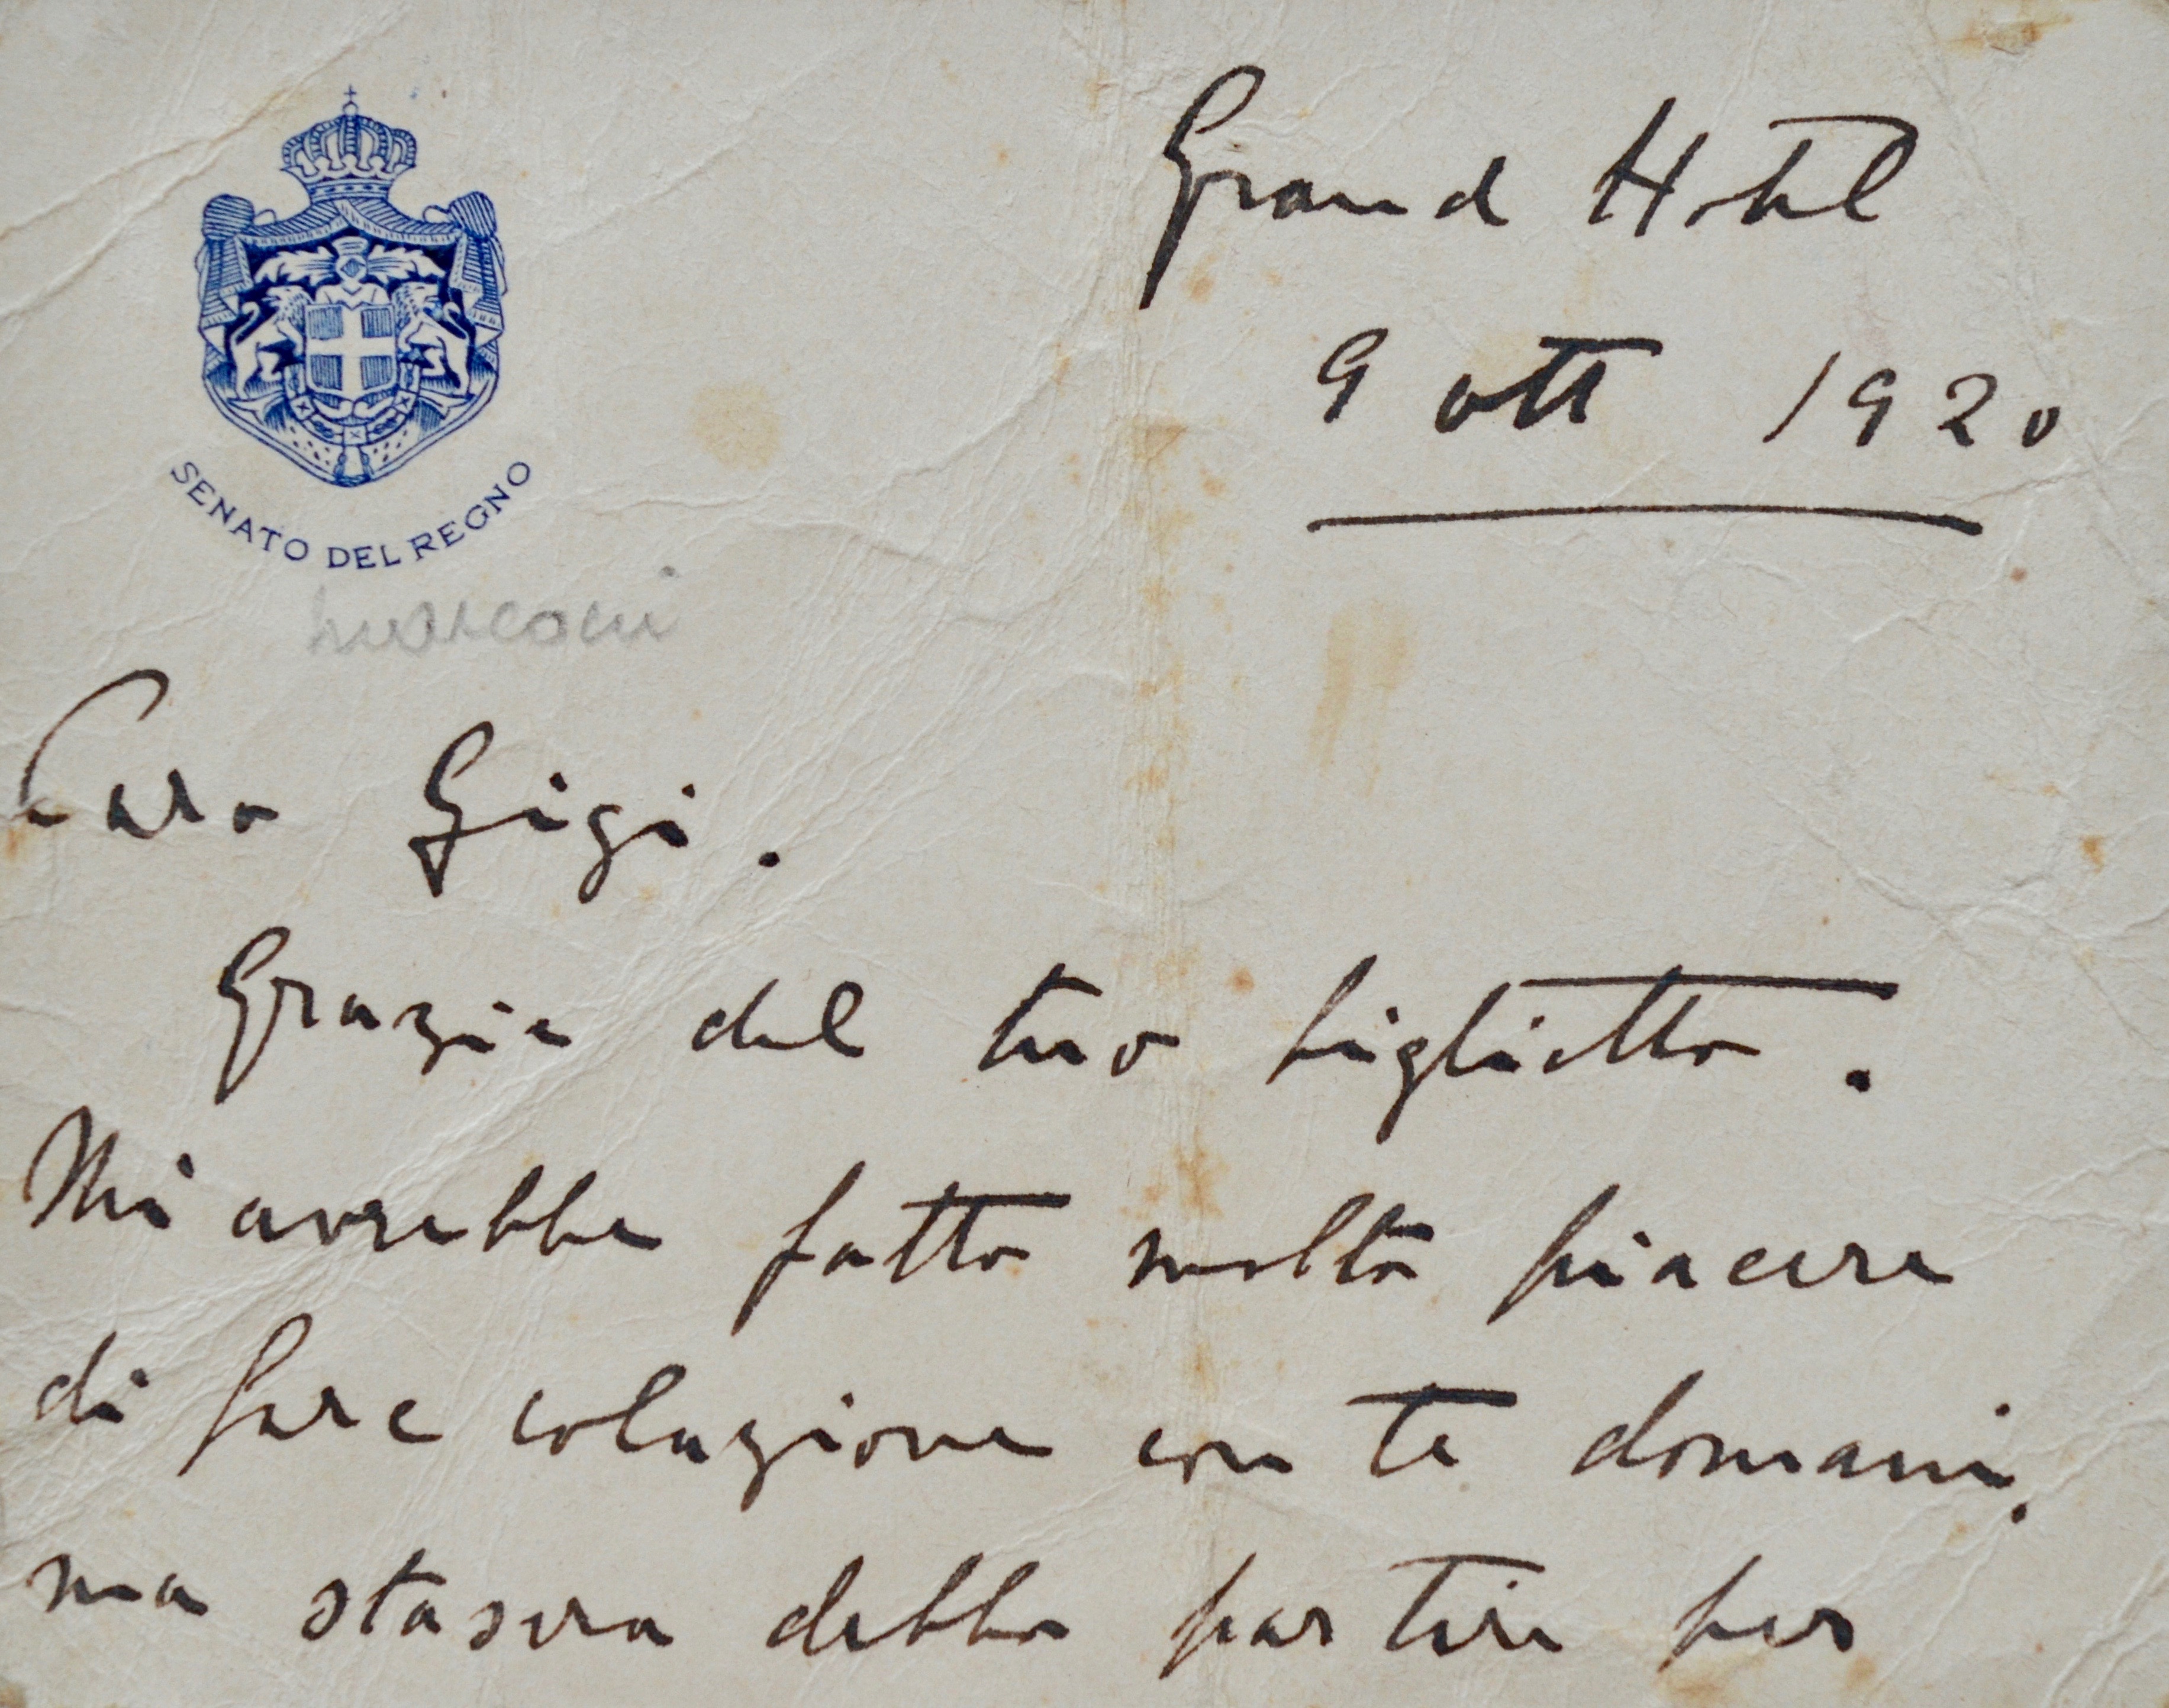 Grand Hotel
9 ott 1920
SENATO DEL REGNO
marconi
Caro Gigi.
Grazie del tuo biglietto.
Mi avrebbe fatto molto piacere
di fare colazione con te domani,
ma stasera debbo partire per